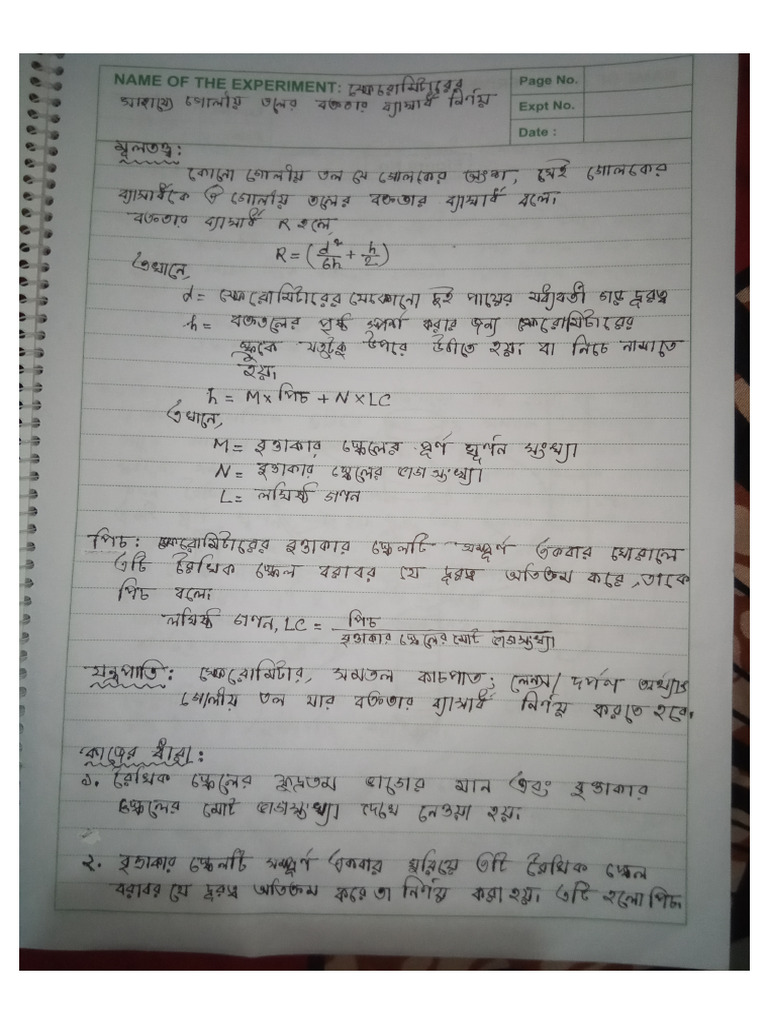 NAME OF THE EXPERIMENT: স্ফেরোমিটারের
Page No.
সাহায্যে গোলীয় তলের বক্রতার ব্যাসার্ধ নির্ণয়
Expt No.
Date :
মূলতত্ত্ব:
কোনো গোলীয় তল যে গোলকের অংশ, সেই গোলকের
ব্যাসার্ধকে ঐ গোলীয় তলের বক্রতার ব্যাসার্ধ বলে।
বক্রতার ব্যাসার্ধ R হলে,
R = (d²/6h + h/2)
এখানে,
d = স্ফেরোমিটারের যেকোনো দুই পায়ের মধ্যবর্তী গড় দূরত্ব
h = বক্রতলের পৃষ্ঠ স্পর্শ করার জন্য স্ফেরোমিটারের
স্ক্রুকে যতটুকু উপরে উঠাতে হয়। বা নিচে নামাতে
হয়।
h = M × পিচ + N × LC
এখানে,
M = বৃত্তাকার স্কেলের পূর্ণ ঘূর্ণন সংখ্যা
N = বৃত্তাকার স্কেলের ভাগ সংখ্যা
L = লঘিষ্ঠ গণন
পিচ: স্ফেরোমিটারের বৃত্তাকার স্কেলটি সম্পূর্ণ একবার ঘোরালে
এটি রৈখিক স্কেল বরাবর যে দূরত্ব অতিক্রম করে, তাকে
পিচ বলে।
লঘিষ্ঠ গণন, LC = পিচ / বৃত্তাকার স্কেলের মোট ভাগসংখ্যা
যন্ত্রপাতি: স্ফেরোমিটার, সমতল কাচপাত; লেন্স/ দর্পণ অর্থ্যাৎ
গোলীয় তল যার বক্রতার ব্যাসার্ধ নির্ণয় করতে হবে।
কাজের ধারা:
১. রৈখিক স্কেলের ক্ষুদ্রতম ভাগের মান এবং বৃত্তাকার
স্কেলের মোট ভাগসংখ্যা দেখে নেওয়া হয়।
২. বৃত্তাকার স্কেলটি সম্পূর্ণ একবার ঘুরিয়ে এটি রৈখিক স্কেল
বরাবর যে দূরত্ব অতিক্রম করে তা নির্ণয় করা হয়। এটি হলো পিচ।